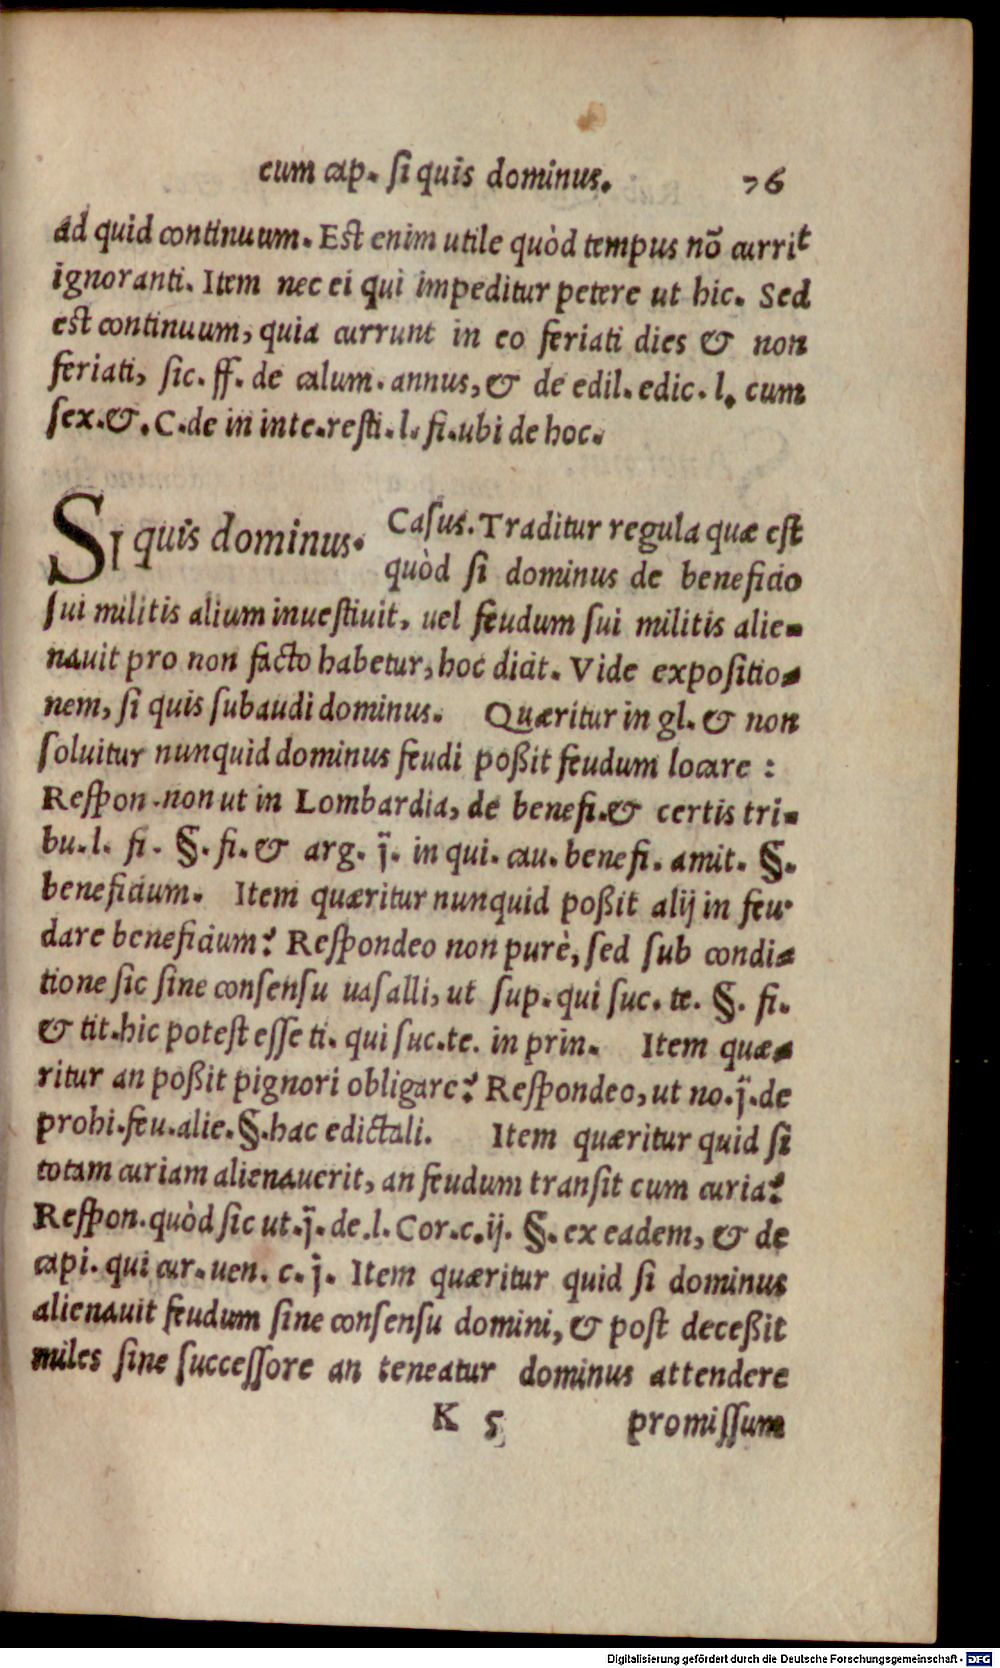 cum cap. ſi quis dominus. 76
ad quid continuum. Est enim utile quòd tempus nõ currit
ignoranti. Item nec ei qui impeditur petere ut hic. Sed
est continuum, quia currunt in eo feriati dies & non
feriati, ſic. ff. de calum. annus, & de edil. edic. l. cum
ſex. &. C. de in inte. reſti. l. fi. ubi de hoc.
SI quis dominus. Caſus. Traditur regula quæ est
quòd ſi dominus de beneficio
ſui militis alium inueſtiuit, uel feudum ſui militis alie-
nauit pro non facto habetur, hoc dicit. Vide expoſitio-
nem, ſi quis ſubaudi dominus. Quæritur in gl. & non
ſoluitur nunquid dominus feudi poßit feudum locare :
Reſpon. non ut in Lombardia, de benefi. & certis tri-
bu. l. fi. §. fi. & arg. j̈. in qui. cau. benefi. amit. §.
beneficium. Item quæritur nunquid poßit alij in feu-
dare beneficium? Reſpondeo non purè, ſed ſub condi-
tione ſic ſine conſenſu uaſalli, ut ſup. qui ſuc. te. §. fi.
& tit. hic poteſt eſſe ti. qui ſuc. te. in prin. Item quæ-
ritur an poßit pignori obligare? Reſpondeo, ut no. j̈. de
prohi. feu. alie. §. hac edictali. Item quæritur quid ſi
totam curiam alienauerit, an feudum tranſit cum curia?
Reſpon. quòd ſic ut. j̈. de. l. Cor. c. ij. §. ex eadem, & de
capi. qui cur. uen. c. j. Item quæritur quid ſi dominus
alienauit feudum ſine conſenſu domini, & poſt deceßit
miles ſine ſucceſſore an teneatur dominus attendere
K 5 promiſſum
Digitalisierung gefördert durch die Deutsche Forschungsgemeinschaft - DFG